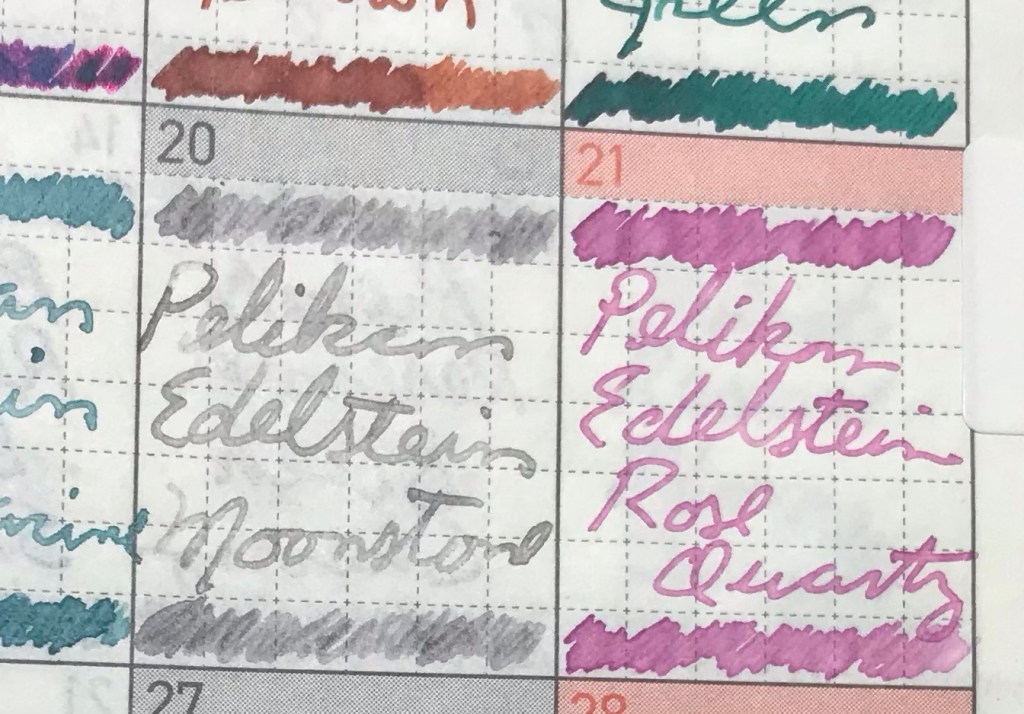 Green
14
20
21
Pelikan
Edelstein
Moonstone
Pelikan
Edelstein
Rose
Quartz
27
28
21